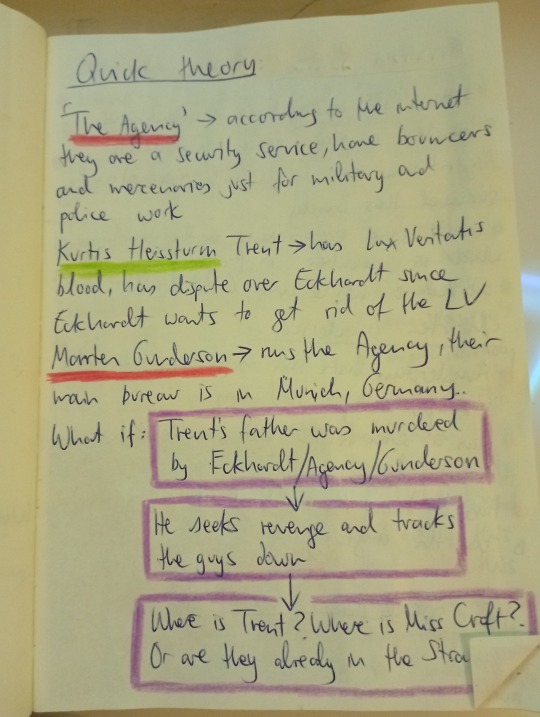 Quick theory
'The Agency' → according to the internet
they are a security service, have bouncers
and mercenaries just for military and
police work
Kurtis Heissturm Trent → has Lux Veritatis
blood, has dispute over Eckhardt since
Eckhardt wants to get rid of the LV
Marten Gunderson → runs the Agency, their
main bureau is in Munich, Germany..
What if: Trent's father was murdered
by Eckhardt/Agency/Gunderson
He seeks revenge and tracks
the guys down
Where is Trent? Where is Miss Croft?
Or are they already in the